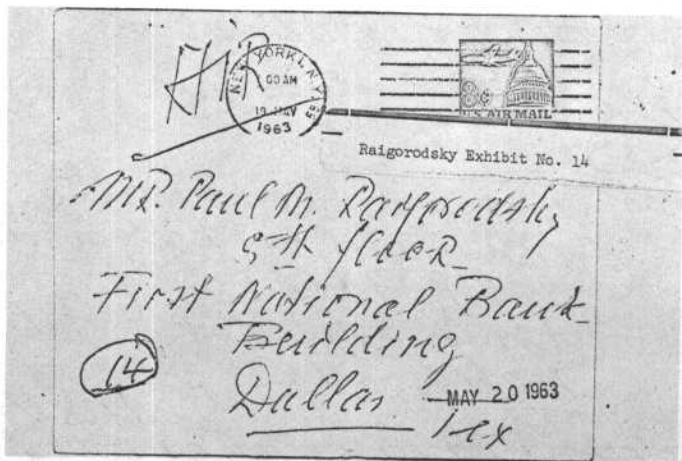 AIR
NEW YORK 1, N.Y.
00 AM
19 MAY
1963
8¢
U.S. AIR MAIL
Raigorodsky Exhibit No. 14
Mr. Paul M. Raigorodsky
5th floor
First National Bank
Building
14
Dallas
MAY 20 1963
Tex